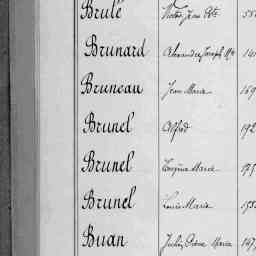 Brulé Victor Jean Bte
Brunard Alexandre Joseph Mie
Bruneau Jean Marie
Brunel Alfred 192
Brunel Eugène Marie
Brunel Louis Marie
Buan Julien Marie